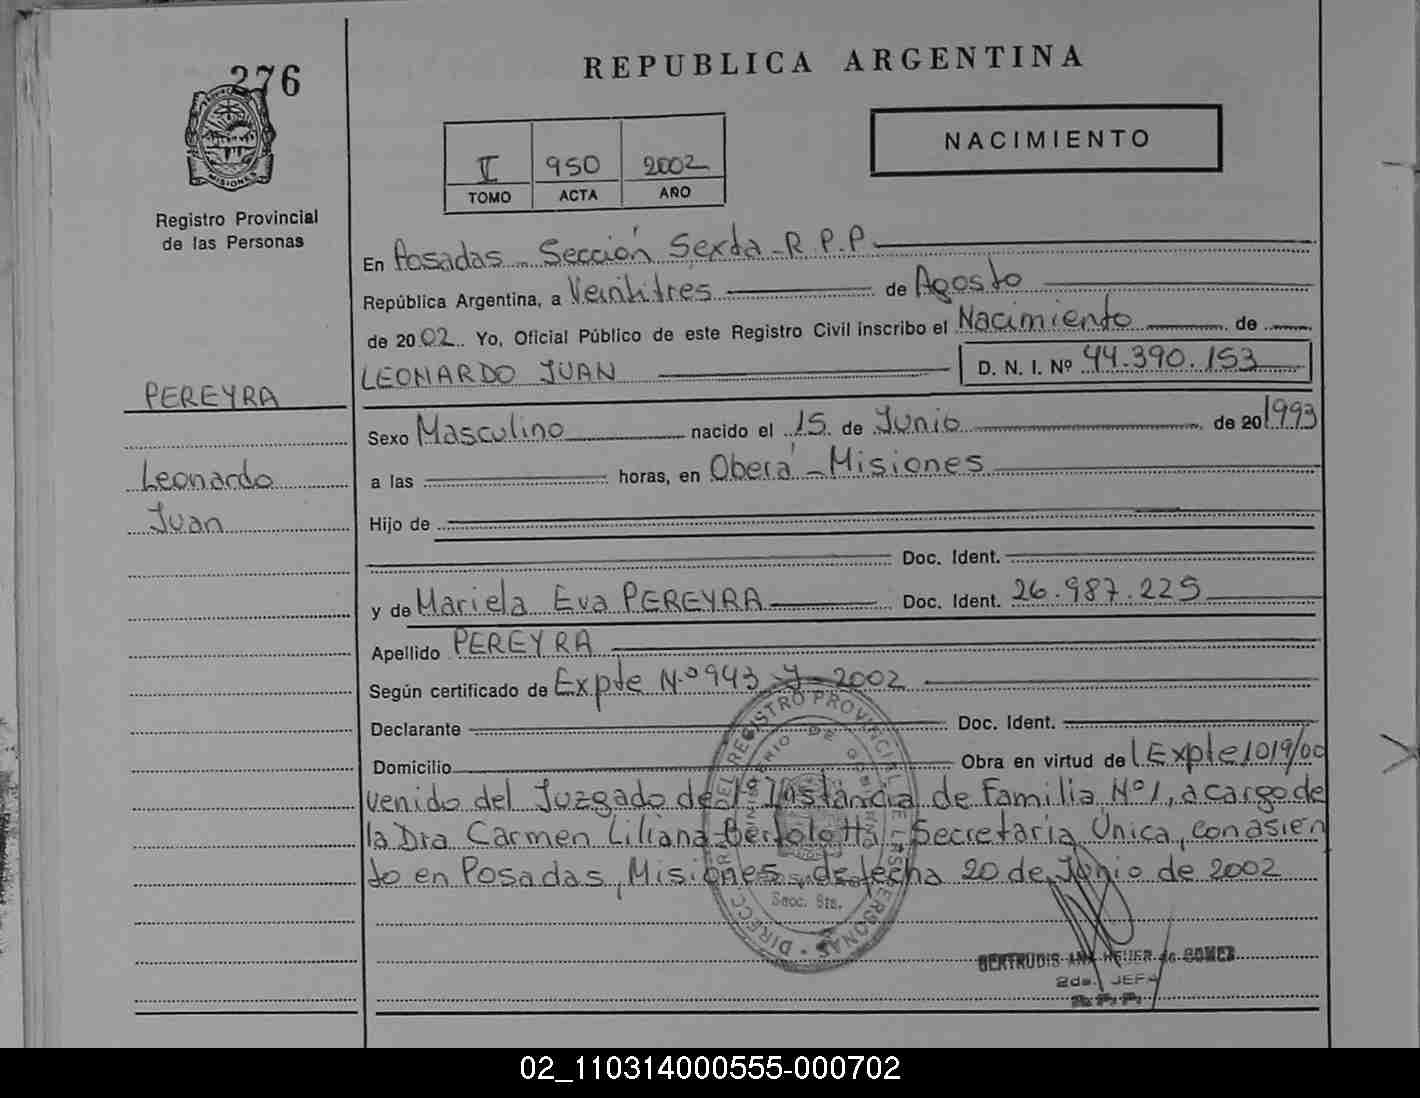 276
REPUBLICA ARGENTINA
NACIMIENTO
II 950 2002
TOMO ACTA AÑO
MISIONES
Registro Provincial
de las Personas
En Posadas - Sección Sexta - R.P.P.
República Argentina, a Veintitres de Agosto
de 2002. Yo, Oficial Público de este Registro Civil inscribo el Nacimiento de
LEONARDO JUAN D. N. I. Nº 44.390.153
PEREYRA
Sexo Masculino nacido el 15 de Junio de 20 1993
Leonardo
a las horas, en Oberá - Misiones
Juan
Hijo de
Doc. Ident.
y de Mariela Eva PEREYRA Doc. Ident. 26.987.225
Apellido PEREYRA
Según certificado de Expte N.º 943 y 2002
Declarante Doc. Ident.
Domicilio Obra en virtud del Expte 1019/00
venido del Juzgado de 1ª Instancia de Familia Nº 1, a cargo de
la Dra Carmen Liliana Bertolotti, Secretaría Única, con asien
to en Posadas, Misiones, de fecha 20 de Junio de 2002
DIRECC REGISTRO PROVINCIAL DE LAS PERSONAS
Secc. 6ta.
GERTRUDIS ANA de GOMEZ
2da. JEFA
R.P.P.
02_110314000555-000702